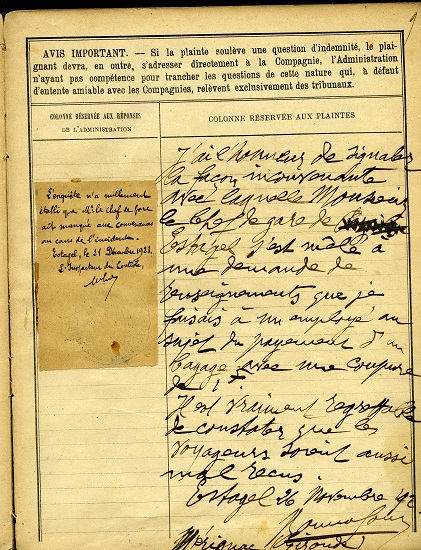 AVIS IMPORTANT. — Si la plainte soulève une question d'indemnité, le plai-
gnant devra, en outre, s'adresser directement à la Compagnie, l'Administration
n'ayant pas compétence pour trancher les questions de cette nature qui, à défaut
d'entente amiable avec les Compagnies, relèvent exclusivement des tribunaux.
COLONNE RÉSERVÉE AUX RÉPONSES
DE L'ADMINISTRATION
L'enquête n'a nullement
établi que Mr le chef de gare
ait manqué aux convenances
au cours de l'incident.
Estagel, le 21 Décembre 1921.
L'Inspecteur du Contrôle,
COLONNE RÉSERVÉE AUX PLAINTES
J'ai l'honneur de signaler
la façon inconvenante
avec laquelle Monsieur
le chef de gare de
Estagel s'est mêlé à
une demande de
renseignements que je
faisais à un employé au
sujet du payement d'un
bagage avec une coupure
de 1 F
Il est vraiment regrettable
de constater que les
voyageurs soient aussi
mal reçus.
Estagel 26 Novembre 192
Mérignac Gironde